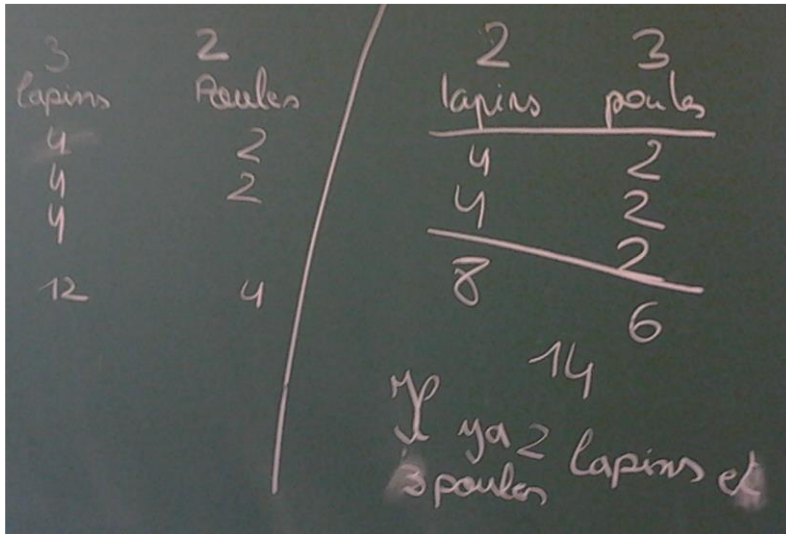 3 2
lapins Poules
4 2
4 2
4
12 4
2 3
lapins poules
4 2
4 2
2
8
6
14
Il ya 2 lapins et
3 poules